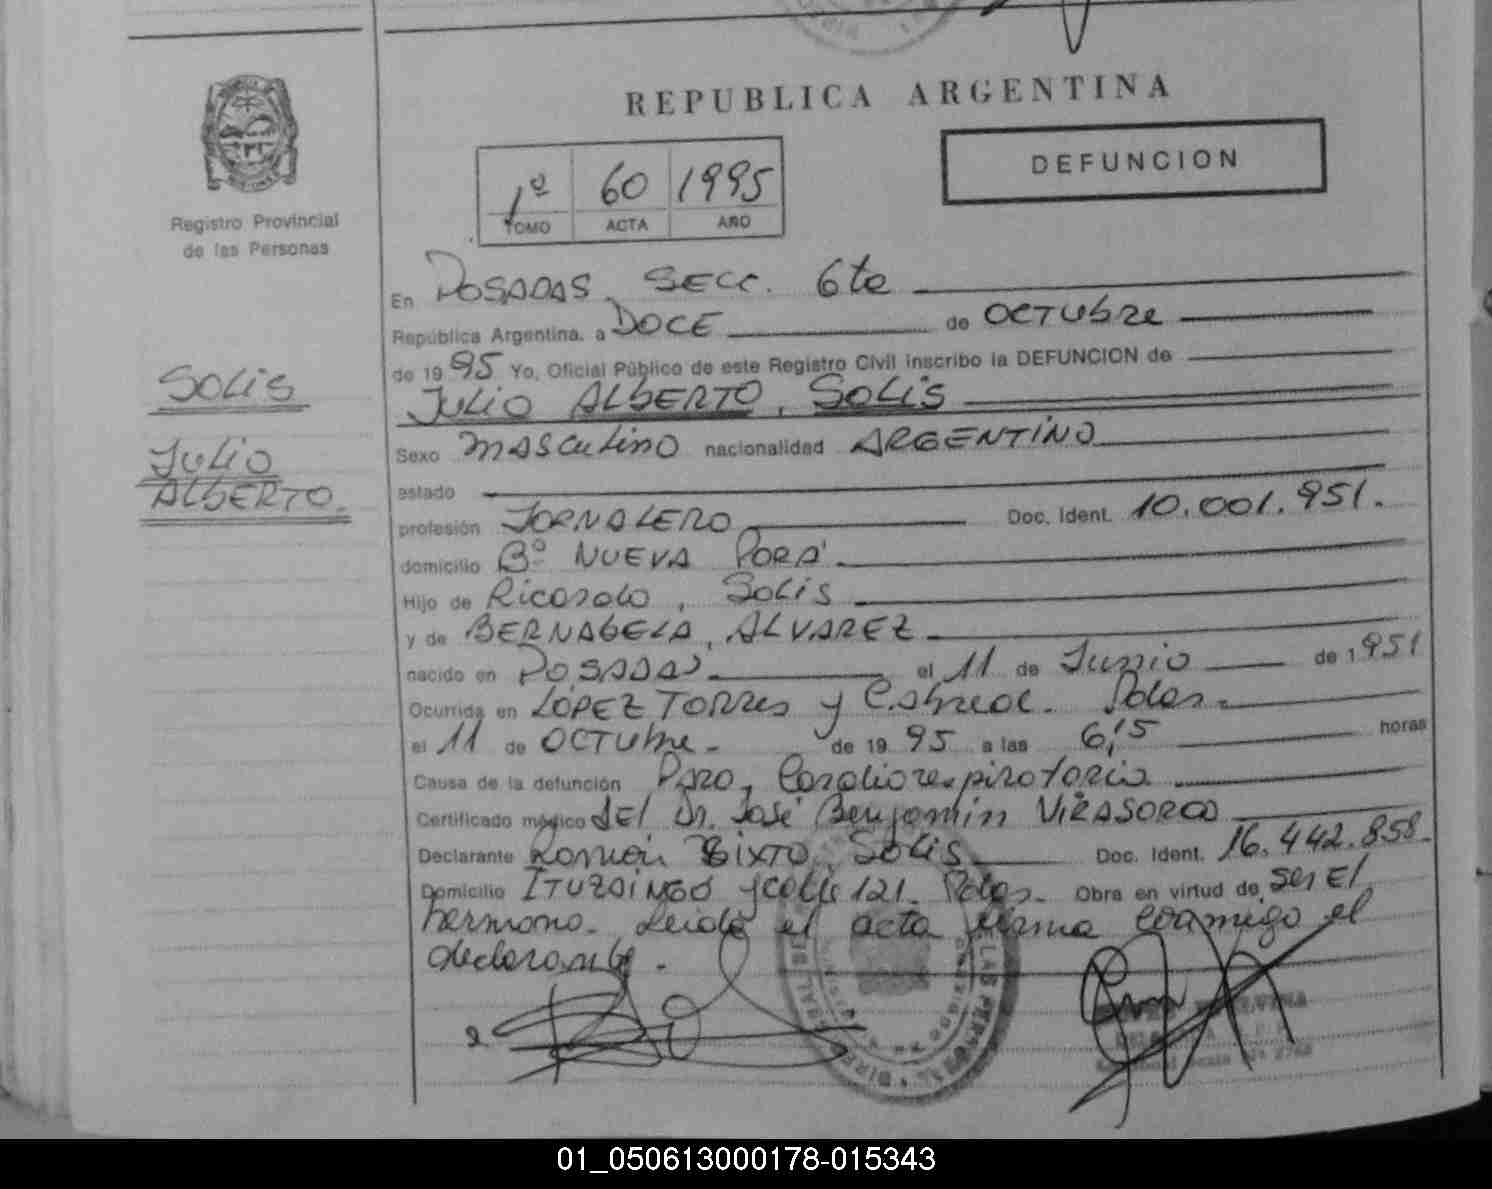 REPUBLICA ARGENTINA
1º 60 1995
TOMO ACTA AÑO
DEFUNCION
Registro Provincial
de las Personas
SOLIS
JULIO
ALBERTO.
En POSADAS, SECC. 6ta
República Argentina, a DOCE de OCTUbre
de 1995 Yo, Oficial Público de este Registro Civil inscribo la DEFUNCION de
JULIO ALBERTO, SOLIS
Sexo masculino nacionalidad ARGENTINO
estado
profesión JORNALERO Doc. Ident. 10.001.951.
domicilio Bº NUEVA PORÁ
Hijo de Ricardo, Solis
y de BERNABELA, ALVAREZ
nacido en POSADAS el 11 de Junio de 1951
Ocurrida en LÓPEZ TORRES y Cabred. Pdas.
el 11 de OCTUbre. de 1995 a las 6,15 horas
Causa de la defunción Paro, Cardiorespiratorio
Certificado médico del Dr. José Benjamín VIRASORO
Declarante Román SIXTO, Solis Doc. Ident. 16.442.858.
Domicilio ITUZAINGÓ y calle 121. Pdas. Obra en virtud de, ser El
hermano. Leida el acta firma conmigo el
declarante.
01_050613000178-015343